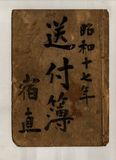 昭和十七年
送付簿
宿直